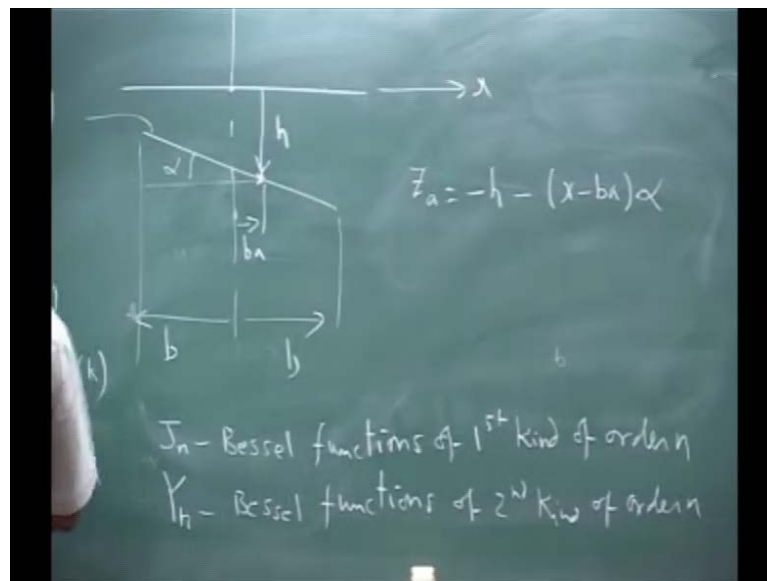 x
h
α
Z_a = -h - (x-ba)α
ba
b
b
(k)
J_n - Bessel functions of 1st kind of order n
Y_n - Bessel functions of 2nd kind of order n